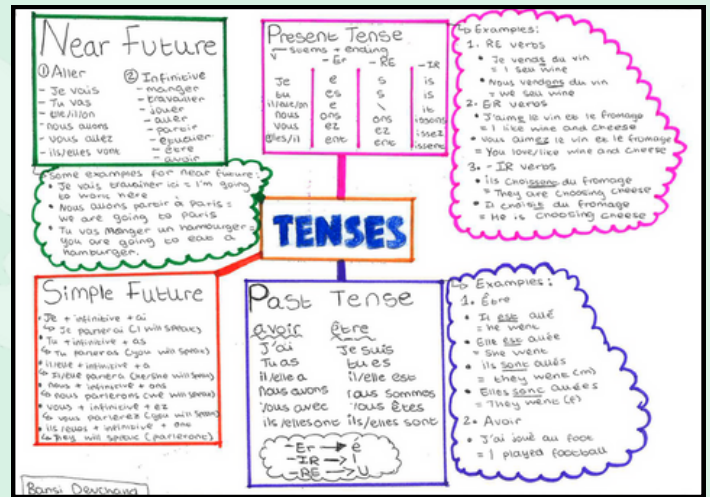 Near Future
① Aller
- Je vais
- Tu vas
- elle/il/on
- nous allons
- vous allez
- ils/elles vont
② Infinitive
- manger
- travailler
- jouer
- aller
- partir
- être
- avoir
↳ Some examples for near future:
• Je vais travailler ici = I'm going
to work here
• Nous allons partir à Paris =
we are going to Paris
• Tu vas manger un hamburger =
You are going to eat a
hamburger.
Present Tense
stems + ending
-Er -RE -IR
Je e s is
tu es s is
il/elle/on e \ it
nous ons ons issons
vous ez ez issez
elles/il ent ent issent
↳ Examples:
1. RE verbs
• Je vends du vin
= I sell wine
• Nous vendons du vin
= we sell wine
2. ER verbs
• J'aime le vin et le fromage
= I like wine and cheese
• Vous aimez le vin et le fromage
= You love/like wine and cheese
3. -IR verbs
• ils choissent du fromage
= They are choosing cheese
• Il choisit du fromage
= He is choosing cheese
TENSES
Simple Future
• Je + infinitive + ai
↳ Je parlerai (I will speak)
• Tu + infinitive + as
↳ Tu parleras (you will speak)
• il/elle + infinitive + a
↳ Il/elle parlera (he/she will speak)
• nous + infinitive + ons
↳ nous parlerons (we will speak)
• vous + infinitive + ez
↳ vous parlerez (you will speak)
• ils/elles + infinitive + ont
↳ They will speak (parleront)
Past Tense
avoir être
J'ai Je suis
Tu as tu es
il/elle a il/elle est
nous avons nous sommes
vous avec vous êtes
ils/elles ont ils/elles sont
-Er → é
-IR → i
-RE → u
↳ Examples:
1. Être
• Il est allé
= he went
• Elle est allée
= She went
• ils sont allés
= they went (m)
• Elles sont allées
= They went (f)
2. Avoir
• J'ai joué au foot
= I played football
Bansi